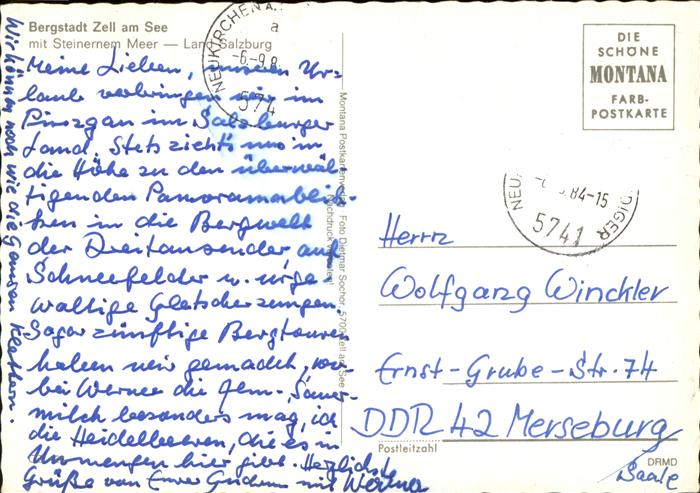 Bergstadt Zell am See
mit Steinernem Meer — Land Salzburg
Meine Lieben, unseren Ur-
laub verbringen wir im
Pinzgau im Salzburger
Land. Stets zieht's uns in
die Höhe zu den überwäl-
tigenden Panoramablik-
ken in die Bergwelt
der Dreitausender, auf
Schneefelder u. urge-
waltige Gletscherzungen.
Sogar zünftige Bergtouren
haben wir gemacht, wo-
bei Werner die Alm-Sauer-
milch besonders mag, ich
die Heidelbeeren, die es in
Unmengen hier gibt. Herzlichste
Grüße von Eurer Gudrun mit Werner
Wir können noch wie die Gemsen klettern.
NEUKIRCHEN A.
a
-6.-9.8
574
Montana Postkartenverlag Foto Dietmar Sochor, 5700 Zell am See
Nachdruck verboten!
DIE
SCHÖNE
MONTANA
FARB-
POSTKARTE
NEU DIGER
84-15
5741
Herrn
Wolfgang Winckler
Ernst-Grube-Str. 74
DDR 42 Merseburg
Postleitzahl
DRMD
Saale